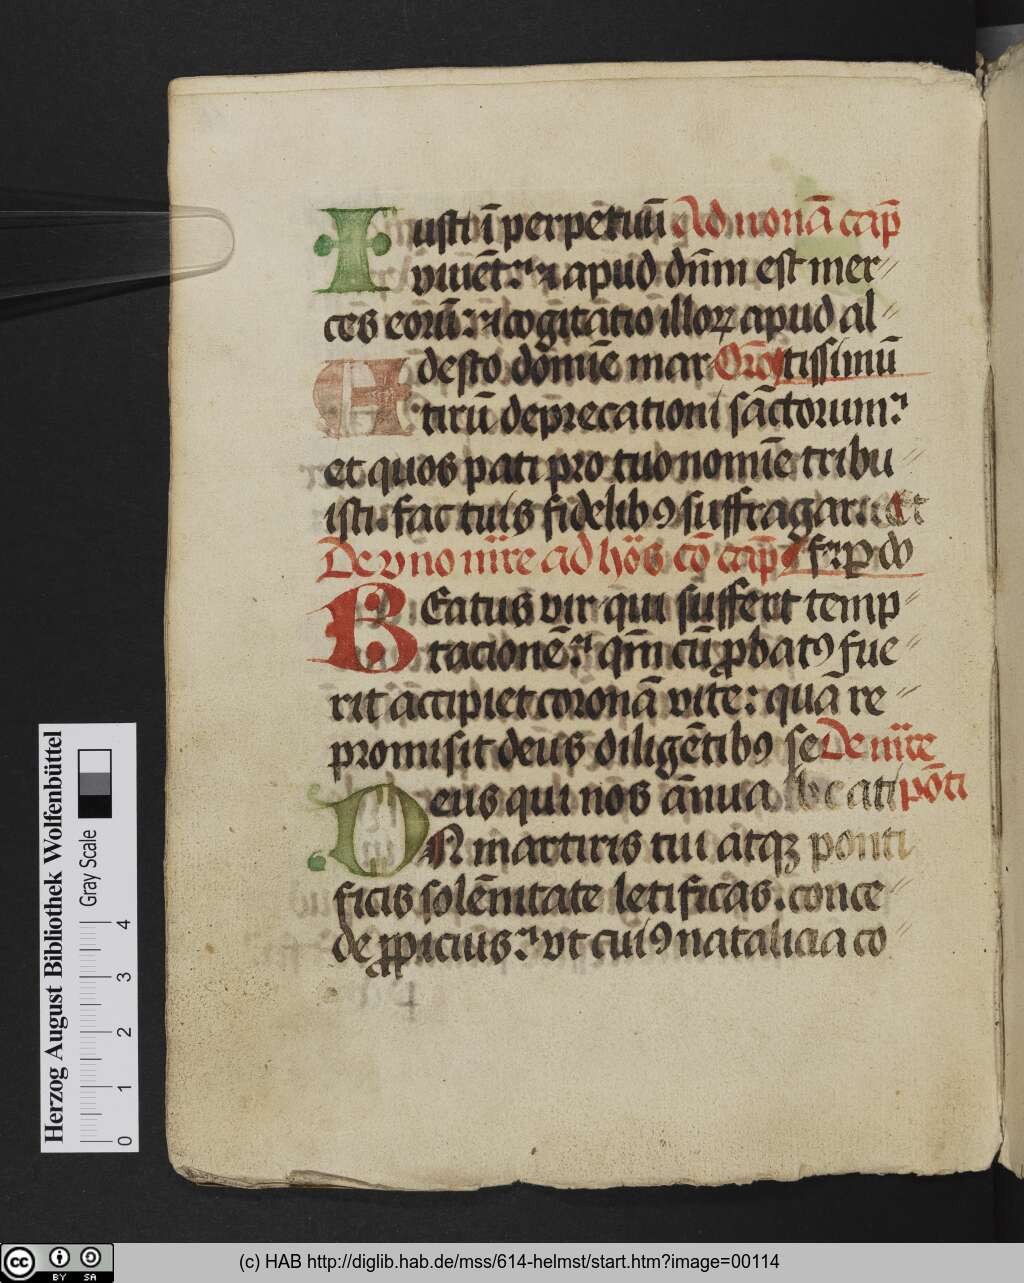 Iusti ī perpētuū Ad nonā cap̄
viuēt: ⁊ apud dn̄m est mer
ces eorū: ⁊ cogitatio illoꝝ apud al
Adesto domīe mar Oro tissimū
tirū deprecationi sāctorum:
et quos pati pro tuo nomīe tribu
isti. fac tuis fidelibꝫ suffragari. Et
De vno mr̄e ad hōs cō cap̄
BEatus vir qui suffert temp
tacionē: qm̄ cū ꝓbatꝰ fue
rit accipiet coronā vite: quā re
promisit deus diligētibꝫ se De mr̄e
Deus qui nos ānua beati pōti
N martiris tui atqꝫ ponti
ficis solēnitate letificas. conce
de ꝓpicius: vt cuiꝰ natalicia co
Herzog August Bibliothek Wolfenbüttel
Gray Scale
0 1 2 3 4
cc BY SA
(c) HAB http://diglib.hab.de/mss/614-helmst/start.htm?image=00114